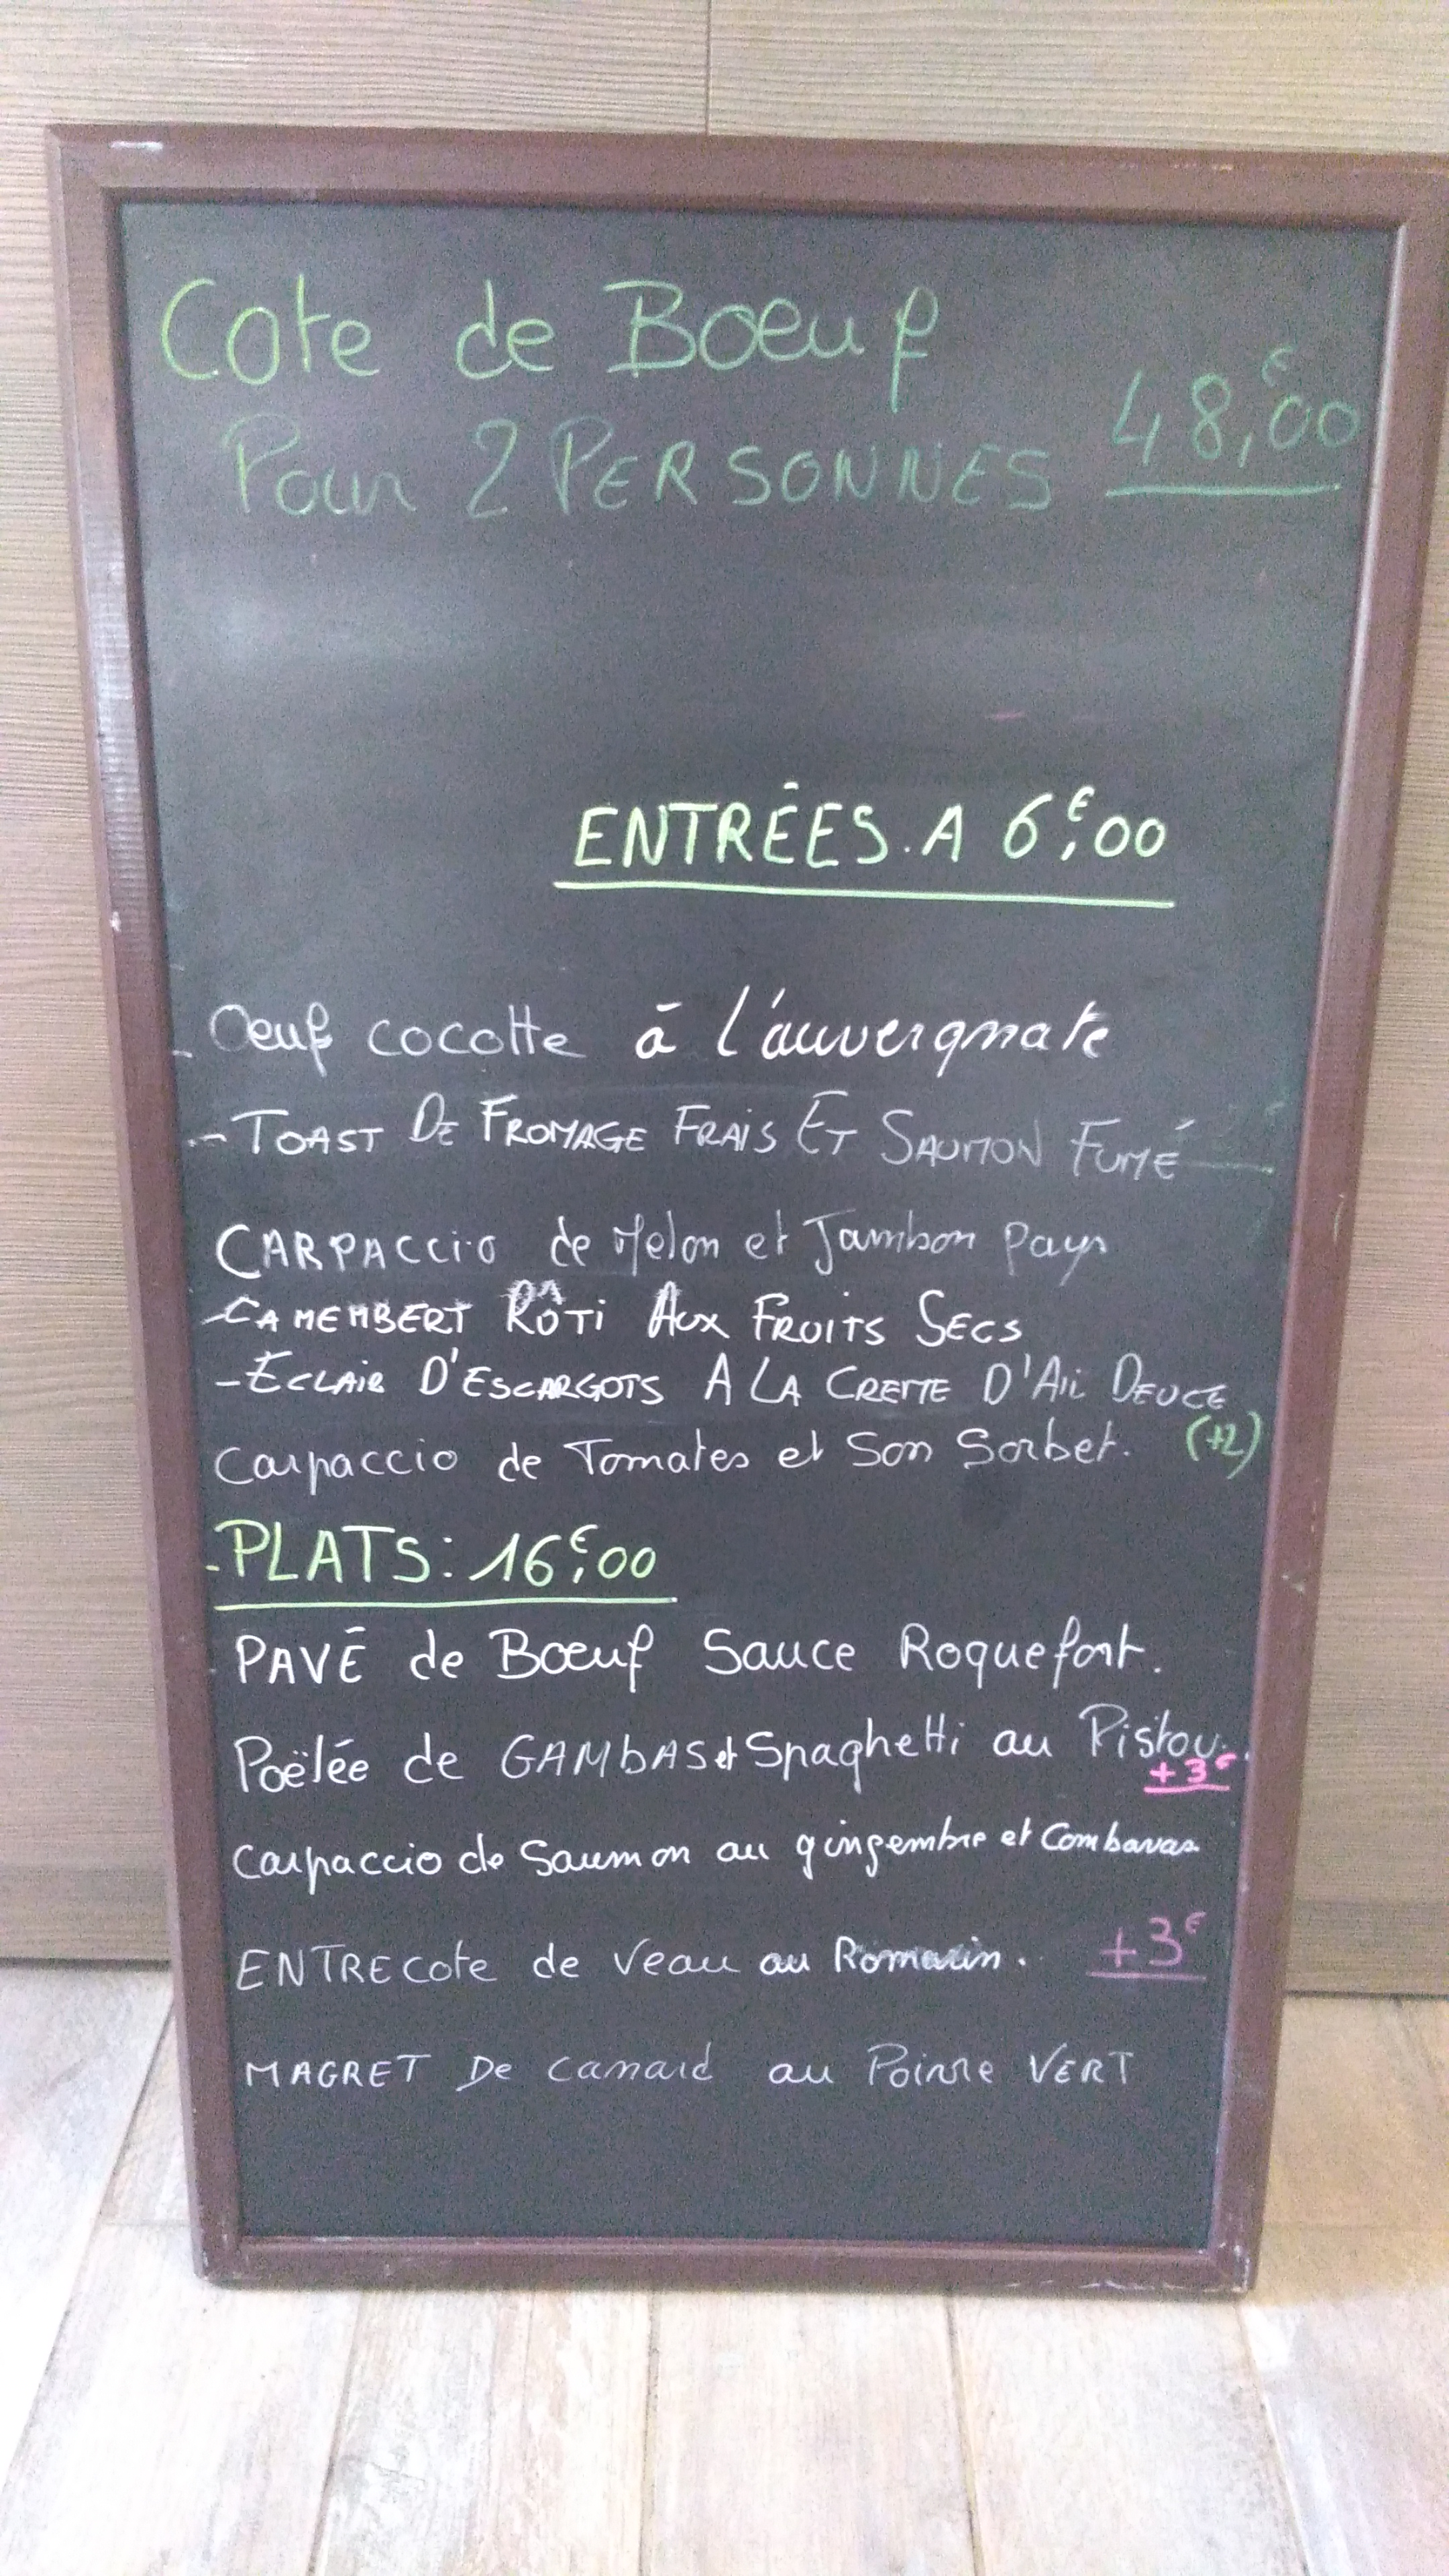 Cote de Boeuf
Pour 2 PERSONNES 48,€00
ENTRÉES. A 6,€00
- Oeuf cocotte à l'auvergnate
- TOAST DE FROMAGE FRAIS ET SAUMON FUMÉ
CARPACCIO de Melon et Jambon Pays
- CAMEMBERT RÔTI AUX FRUITS SECS
- ÉCLAIR D'ESCARGOTS A LA CREME D'AIL DEUCE
Carpaccio de Tomates et Son Sorbet. (+2)
- PLATS: 16,€00
PAVÉ de Boeuf Sauce Roquefort.
Poëlée de GAMBAS et Spaghetti au Pistou.
+3€
Carpaccio de Saumon au gingembre et Combavas
ENTRECOTE de Veau au Romarin. +3€
MAGRET De Canard au Poivre VERT